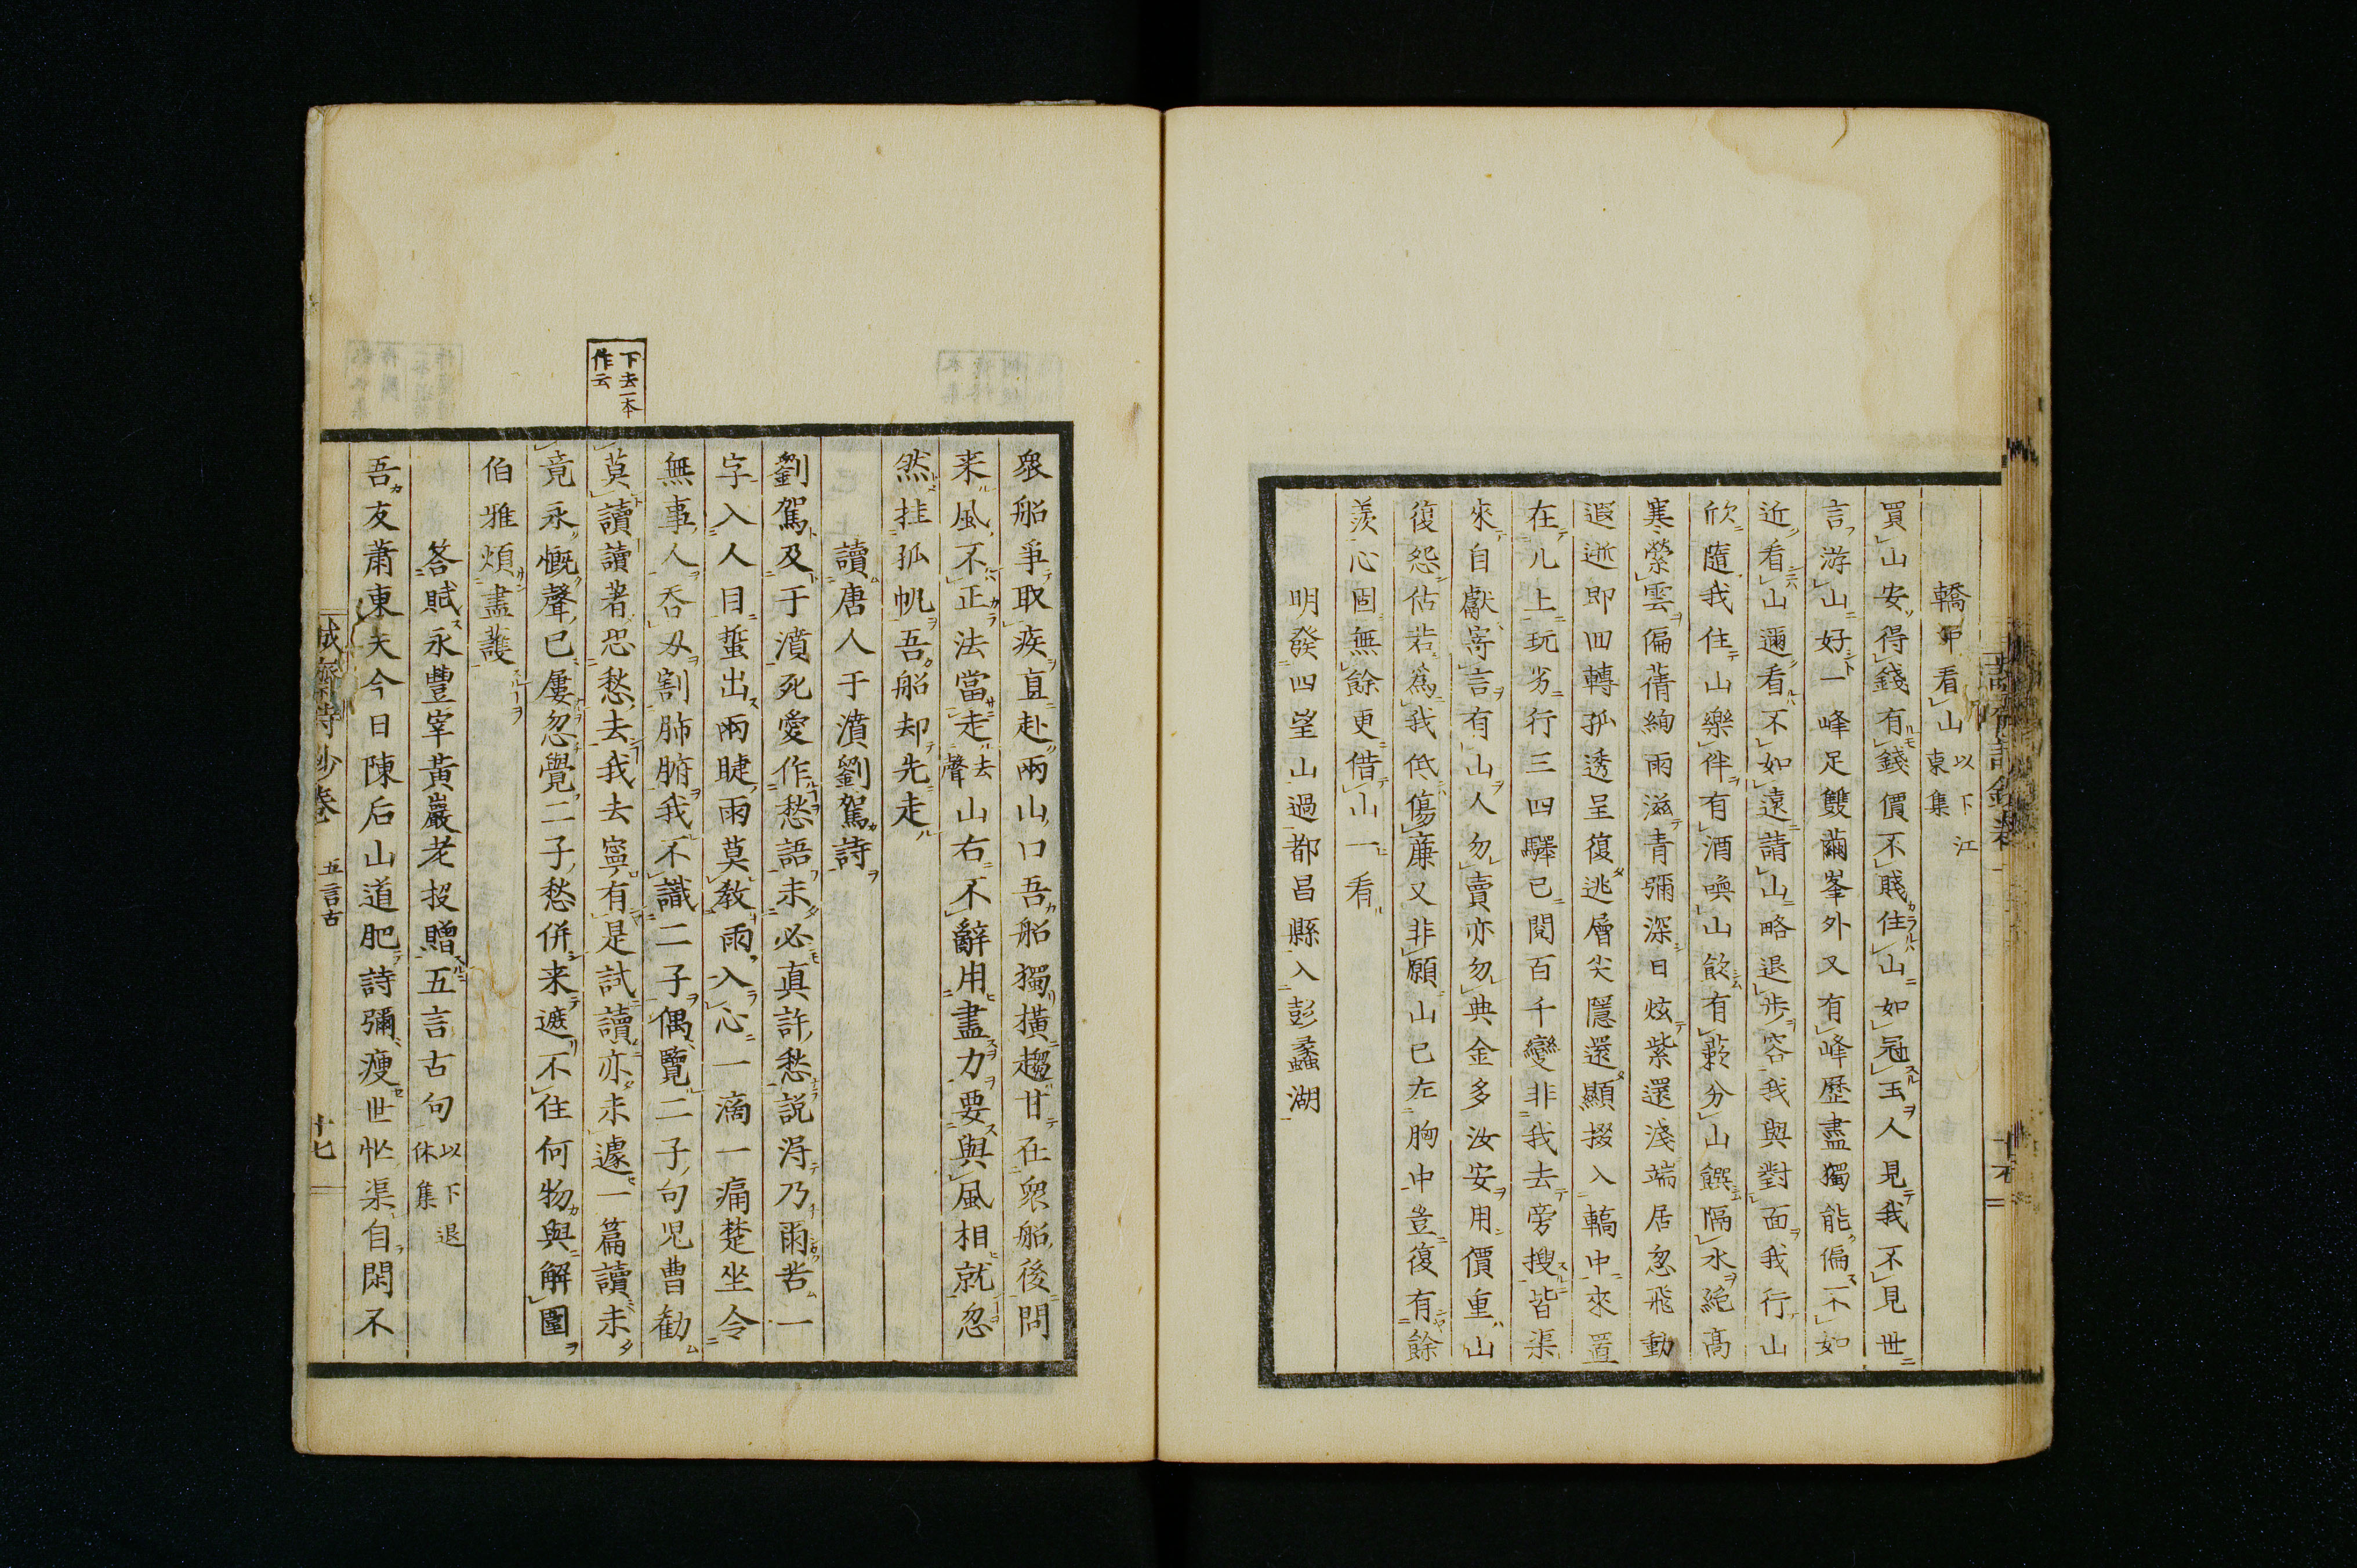 轎中看山 以下江東集
買山安得錢有錢價不賤住山如冠玉人見我不見世
言游山好一峰足雙繭峯外又有峰歷盡獨能偏不如
近看山邇看不如遠請山略退步容我與對面我行山
欣隨我住山樂伴有酒喚山飲有蔌分山饌隔水絶高
寒縈雲偏蒨絢雨滋青彌深日炫紫還淺端居忽飛動
遐逝即回轉孤透呈復逃層尖隱還顯掇入轎中來置
在几上玩劣行三四驛已閱百千變非我去旁搜皆渠
來自獻寄言有山人勿賣亦勿典金多汝安用價重山
復怨估若為我低傷廉又非願山已左胸中豈復有餘
羨心固無餘更借山一看
明發四望山過都昌縣入彭蠡湖
衆船爭取疾直赴兩山口吾船獨橫趨甘在衆船後問
来風不正法當走去聲山右不辭用盡力要與風相就忽
然挂孤帆吾船却先走
讀唐人于濆劉駕詩
劉駕及于濆死愛作愁語未必真許愁説得乃爾苦一
字入人目蜇出兩睫雨莫教雨入心一滴一痛楚坐令
無事人吞刃割肺腑我不識二子偶覽二子句兒曹勸
下去一本作云
莫讀讀著恐愁去我去寧有是試讀亦未遽一篇讀未
竟永慨聲已屢忽覺二子愁併来遮不住何物與解圍
伯雅煩盡護
答賦永豐宰黃巖老投贈五言古句 以下退休集
吾友蕭東夫今日陳后山道肥詩彌瘦世忙渠自閑不
誠齋詩鈔卷 五言古 十七